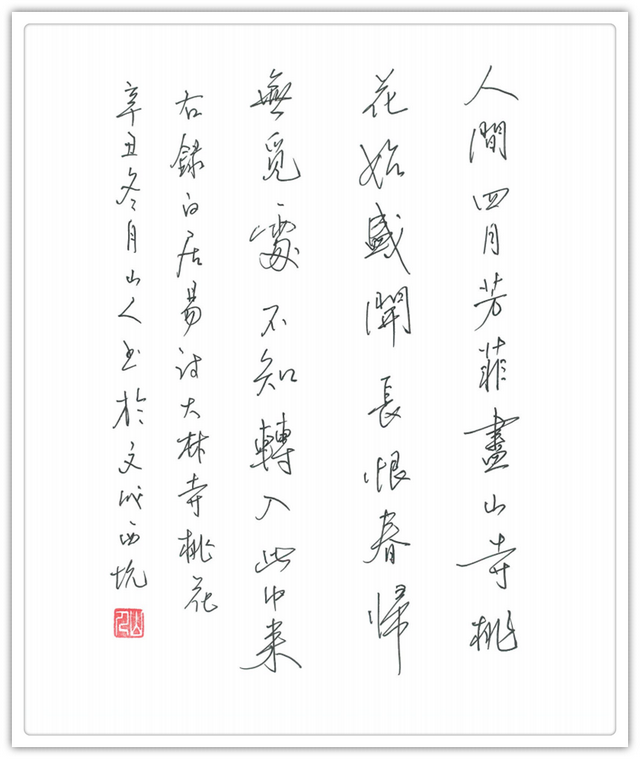 人間四月芳菲盡山寺桃
花始盛開長恨春歸
無覓處不知轉入此中来
右錄白居易詩大林寺桃花
辛丑冬月山人書於文成西坑
山人